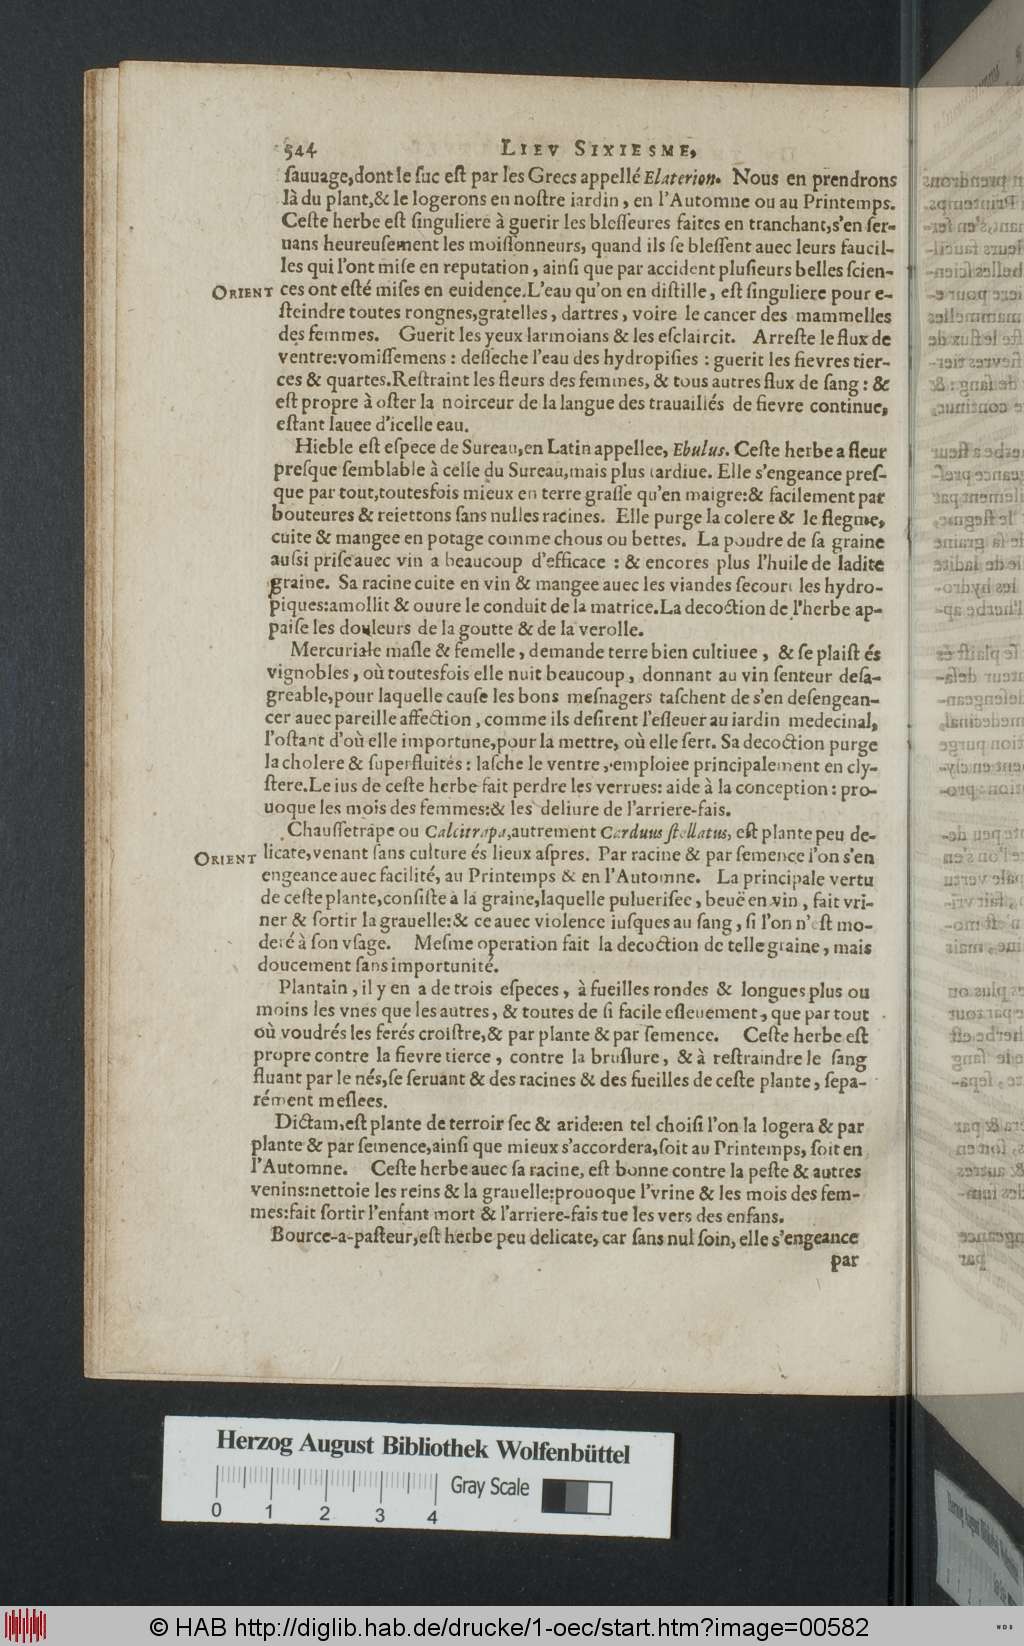 544 LIEV SIXIESME,
ſauuage,dont le ſuc eſt par les Grecs appellé Elaterion. Nous en prendrons
là du plant,& le logerons en noſtre iardin, en l'Automne ou au Printemps.
Ceſte herbe eſt ſinguliere à guerir les bleſſeures faites en tranchant,s'en ſer-
uans heureuſement les moiſſonneurs, quand ils ſe bleſſent auec leurs faucil-
les qui l'ont miſe en reputation, ainſi que par accident pluſieurs belles ſcien-
ORIENT ces ont eſté miſes en euidence.L'eau qu'on en diſtille, eſt ſinguliere pour e-
ſteindre toutes rongnes,gratelles, dartres, voire le cancer des mammelles
des femmes. Guerit les yeux larmoians & les eſclaircit. Arreſte le flux de
ventre:vomiſſemens: deſſeche l'eau des hydropiſies: guerit les fievres tier-
ces & quartes.Reſtraint les fleurs des femmes, & tous autres flux de ſang: &
eſt propre à oſter la noirceur de la langue des trauailiés de fievre continue,
eſtant lauee d'icelle eau.
Hieble eſt eſpece de Sureau,en Latin appellee, Ebulus. Ceſte herbe a fleur
preſque ſemblable à celle du Sureau,mais plus tardiue. Elle s'engeance preſ-
que par tout,toutesfois mieux en terre graſſe qu'en maigre:& facilement par
bouteures & reiettons ſans nulles racines. Elle purge la colere & le flegme,
cuite & mangee en potage comme chous ou bettes. La poudre de ſa graine
auſsi priſe auec vin a beaucoup d'efficace: & encores plus l'huile de ladite
graine. Sa racine cuite en vin & mangee auec les viandes ſecourt les hydro-
piques:amollit & ouure le conduit de la matrice.La decoction de l'herbe ap-
paiſe les douleurs de la goutte & de la verolle.
Mercuriale maſle & femelle, demande terre bien cultiuee, & ſe plaiſt és
vignobles, où toutesfois elle nuit beaucoup, donnant au vin ſenteur deſa-
greable,pour laquelle cauſe les bons meſnagers taſchent de s'en deſengean-
cer auec pareille affection, comme ils deſirent l'eſleuer au iardin medecinal,
l'oſtant d'où elle importune,pour la mettre, où elle ſert. Sa decoction purge
la cholere & ſuperfluités: laſche le ventre, emploiee principalement en cly-
ſtere.Le ius de ceſte herbe fait perdre les verrues: aide à la conception: pro-
uoque les mois des femmes:& les deliure de l'arriere-fais.
Chauſſetrape ou Calcitrapa,autrement Carduus ſtellatus, eſt plante peu de-
ORIENT licate,venant ſans culture és lieux aſpres. Par racine & par ſemence l'on s'en
engeance auec facilité, au Printemps & en l'Automne. La principale vertu
de ceſte plante,conſiſte à la graine,laquelle puluerifee, beuë en vin, fait vri-
ner & ſortir la grauelle:& ce auec violence iuſques au ſang, ſi l'on n'eſt mo-
deré à ſon vſage. Meſme operation fait la decoction de telle graine, mais
doucement ſans importunité.
Plantain, il y en a de trois eſpeces, à fueilles rondes & longues plus ou
moins les vnes que les autres, & toutes de ſi facile eſleuement, que par tout
où voudrés les ferés croiſtre,& par plante & par ſemence. Ceſte herbe eſt
propre contre la fievre tierce, contre la bruſlure, & à reſtraindre le ſang
fluant par le nés,ſe ſeruant & des racines & des fueilles de ceſte plante, ſepa-
rément meſlees.
Dictam,eſt plante de terroir ſec & aride:en tel choiſi l'on la logera & par
plante & par ſemence,ainſi que mieux s'accordera,ſoit au Printemps, ſoit en
l'Automne. Ceſte herbe auec ſa racine, eſt bonne contre la peſte & autres
venins:nettoie les reins & la grauelle:prouoque l'vrine & les mois des fem-
mes:fait ſortir l'enfant mort & l'arriere-fais tue les vers des enfans.
Bource-a-paſteur,eſt herbe peu delicate, car ſans nul ſoin, elle s'engeance
par
Herzog August Bibliothek Wolfenbüttel
Gray Scale
0 1 2 3 4
© HAB http://diglib.hab.de/drucke/1-oec/start.htm?image=00582